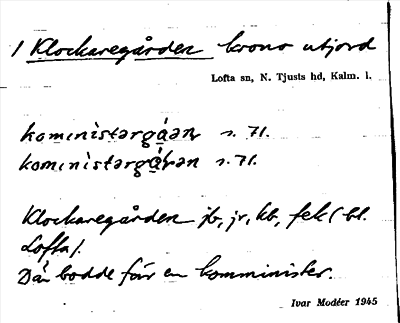 1 Klockaregården krono utjord
Lofta sn, N. Tjusts hd, Kalm. l.
kominìstərgɑ́ən s. 71.
kominìstərgɑ́rən s. 71.
Klockaregården jb, jr, kb, fek (bl.
Lofta).
Där bodde förr en komminister.
Ivar Modéer 1945